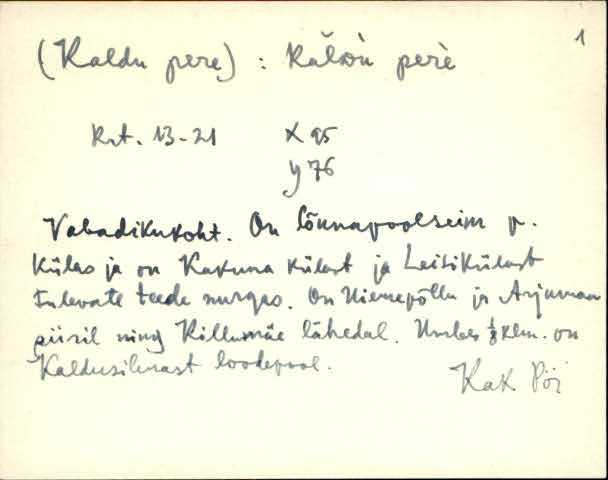 1
(Kaldu pere) : Kălđù perè
Krt. 13-21 X 95
y 76
Vabadikukoht. On lõunapoolseim p.
külas ja on Kakuna külast ja Leisikülast
tulevate teede nurgas. On Niemepõllu ja
piiril ning Killumäe lähedal. Umbes ½ klm. on
Kaldusilmast loodepool.
Kak. Pöi